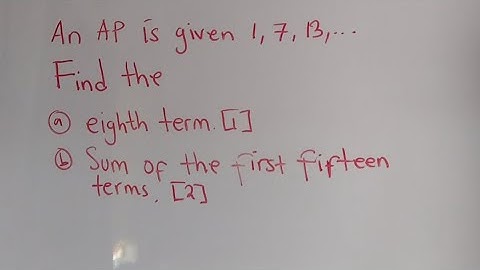 An AP is given 1, 7, 13, ...
Find the
(a) eighth term. [1]
(b) Sum of the first fifteen
terms. [2]